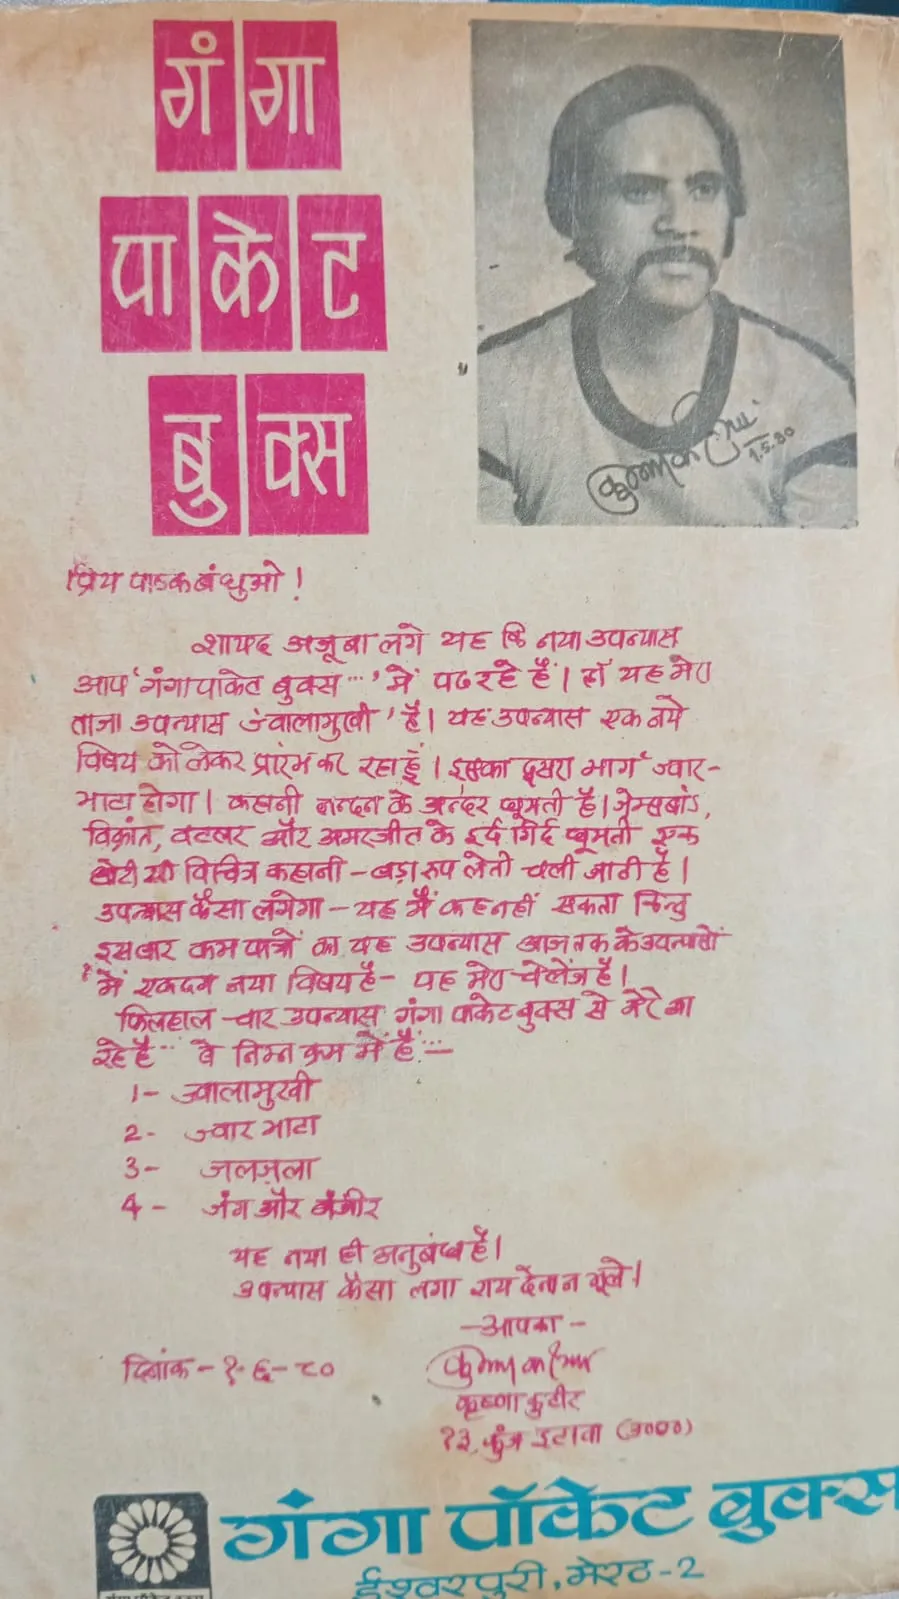 गंगा
पाकेट
बुक्स
1.5.80
प्रिय पाठक बंधुओ !
शायद अजूबा लगे यह कि नया उपन्यास
आप 'गंगा पाकेट बुक्स...' में पढ रहे हैं। हाँ यह मेरा
ताजा उपन्यास 'ज्वालामुखी' है। यह उपन्यास एक नये
विषय को लेकर प्रारंभ कर रहा हूँ। इसका दूसरा भाग 'ज्वार-
भाटा होगा। कहानी लन्दन के अन्दर घूमती है। जेम्सबांड,
विक्रांत, बटलर और अमरजीत के इर्द गिर्द घूमती एक
छोटी सी विचित्र कहानी – बड़ा रुप लेती चली जाती है।
उपन्यास कैसा लगेगा – यह मैं कह नहीं सकता किन्तु
इस बार कम पात्रों का यह उपन्यास आज तक के उपन्यासों
में एकदम नया विषय है – यह मेरा चेलेंज है।
फिलहाल चार उपन्यास गंगा पाकेट बुक्स से मेरे आ
रहे है... वे निम्न क्रम में हैं...–
1- ज्वालामुखी
2- ज्वार भाटा
3- जलज़ला
4- जंग और जंजीर
यह नया ही अनुबंध है।
उपन्यास कैसा लगा राय देना न भूले।
– आपका –
दिनांक - १-६-८०
कृष्णा कुटीर
१३, कुंज इटावा
गंगा पॉकेट बुक्स
ईश्वरपुरी, मेरठ-2